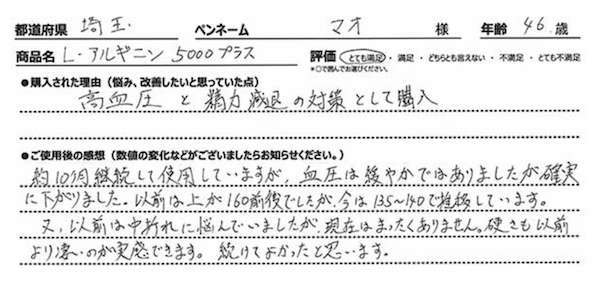 都道府県 埼玉 ペンネーム マオ 様 年齢 46 歳
商品名 L-アルギニン 5000プラス 評価 とても満足・満足・どちらも言えない・不満足・とても不満足
*○で囲んでお選びください。
●購入された理由（悩み、改善したいと思っていた点）
高血圧と精力減退の対策として購入
●ご使用後の感想（数値の変化などがございましたらお知らせください。）
約10ヶ月継続して使用していますが、血圧は緩やかではありましたが確実
に下がりました。以前は上が160前後でしたが、今は135〜140で推移しています。
又、以前は中折れに悩んでいましたが、現在はまったくありません。硬さも以前
より凄いのが実感できます。続けてよかったと思います。